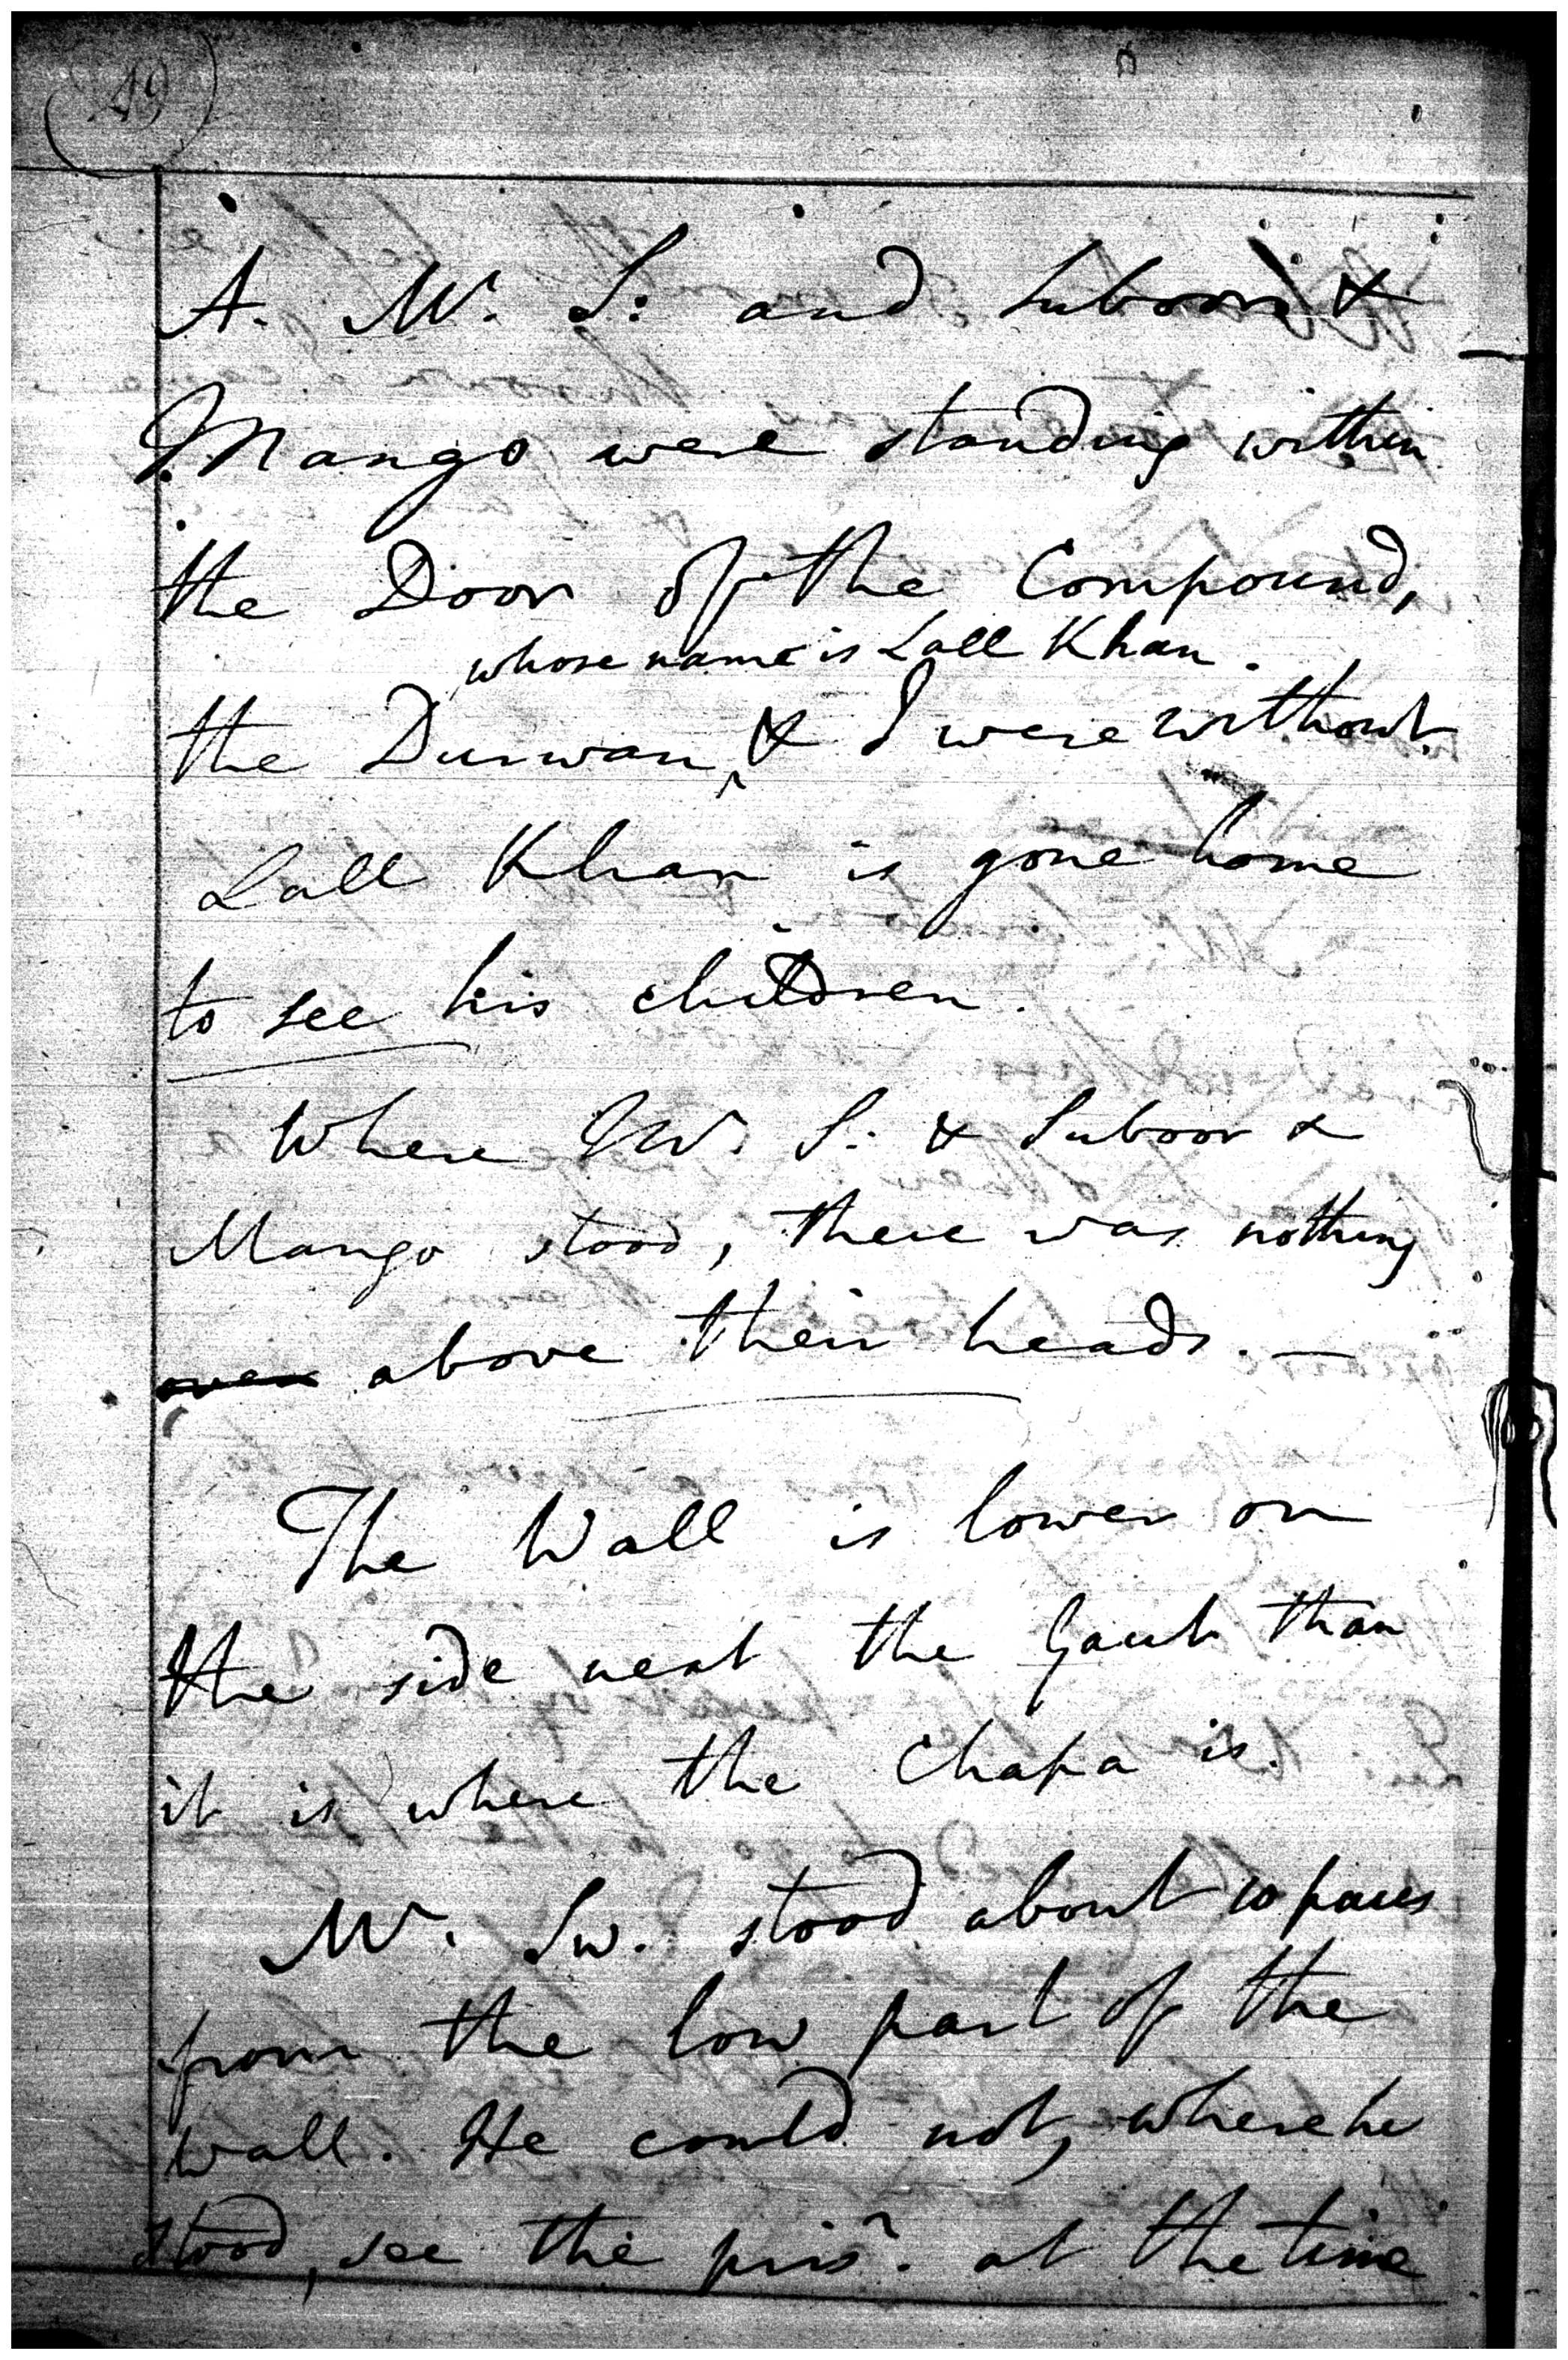 49
A. Mr. S: and Suboor &
Mango were standing within
the Door of the Compound,
whose name is Lall Khan.
the Durwan & I were without.
Lall Khan is gone home
to see his children.
Where Mr. S: & Suboor &
Mango stood, there was nothing
over above their heads. —
The Wall is lower on
the side next the Gaut than
it is where the Chapa is.
Mr. Sw. stood about 10 paces
from the low part of the
wall. He could not, where he
stood, see the prisr. at the time